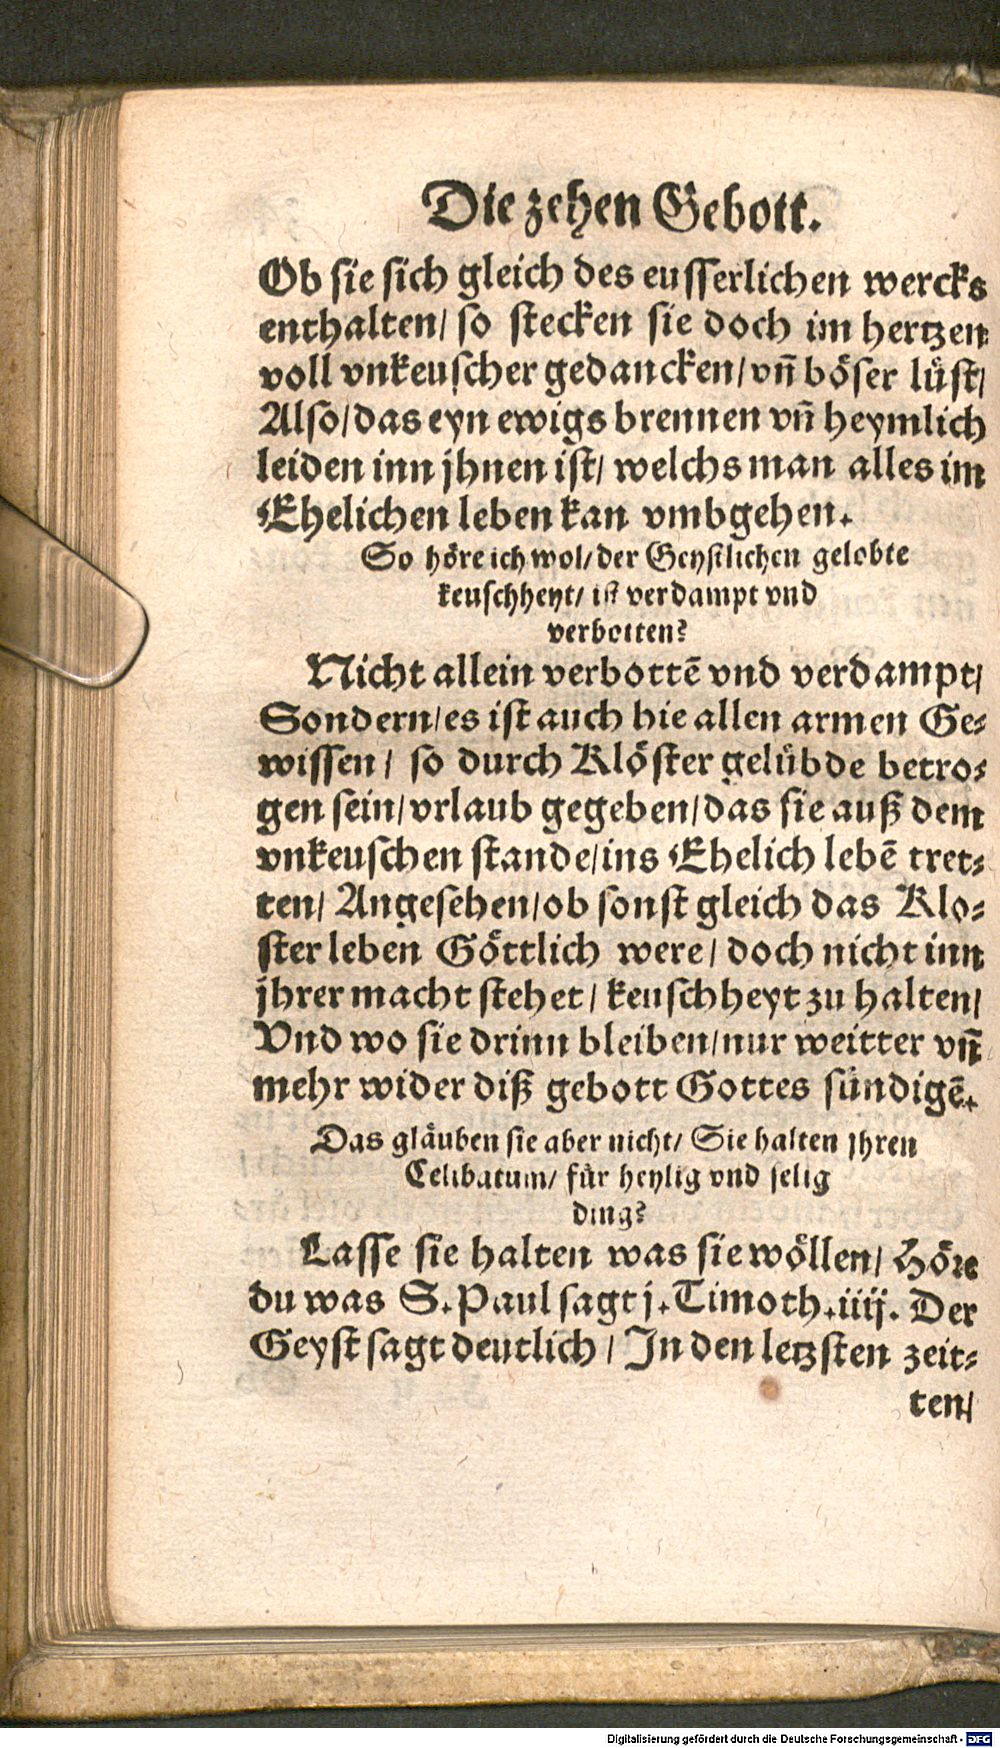 Die zehen Gebott.
Ob sie sich gleich des eusserlichen wercks
enthalten/ so stecken sie doch im hertzen
voll vnkeuscher gedancken/ vn̄ böser lüst/
Also/ das eyn ewigs brennen vn̄ heymlich
leiden inn jhnen ist/ welchs man alles im
Ehelichen leben kan vmbgehen.
So höre ich wol/ der Geystlichen gelobte
keuschheyt/ ist verdampt vnd
verbotten?
Nicht allein verbottē vnd verdampt/
Sondern/ es ist auch hie allen armen Ge⸗
wissen/ so durch Klöster gelübde betro⸗
gen sein/ vrlaub gegeben/ das sie auß dem
vnkeuschen stande/ ins Ehelich lebē tret⸗
ten/ Angesehen/ ob sonst gleich das Klo⸗
ster leben Göttlich were/ doch nicht inn
jhrer macht stehet/ keuschheyt zu halten/
Vnd wo sie drinn bleiben/ nur weitter vn̄
mehr wider diß gebott Gottes sündigē.
Das gläuben sie aber nicht/ Sie halten jhren
Celibatum/ für heylig vnd selig
ding?
Lasse sie halten was sie wöllen/ Höre
du was S. Paul sagt j. Timoth. iiij. Der
Geyst sagt deutlich/ In den letzsten zeit⸗
ten/
Digitalisierung gefördert durch die Deutsche Forschungsgemeinschaft - DFG